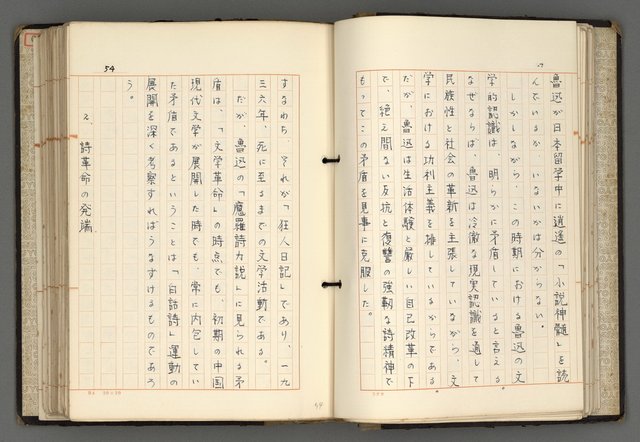 魯迅が日本留学中に逍遥の「小説神髄」を読
んでいるか、いないかは分からない。
しかしながら、この時期における魯迅の文
学的認識は、明らかに矛盾していると言える
なぜならば、魯迅は冷徹な現実認識を通して
民族性と社会の革新を主張していながら、文
学における功利主義を排しているからである
だが、魯迅は生活体験と厳しい自己改革の下
で、絶え間ない反抗と復讐の強靭な詩精神で
もってこの矛盾を見事に克服した。
54
すなわち、それが「狂人日記」であり、一九
三六年、死に至るまでの文学活動である。
だが、魯迅の「摩羅詩力説」に見られる矛
盾は、「文学革命」の時点でも、初期の中国
現代文学が展開した時でも、常に内包してい
た矛盾であるということは「白話詩」運動の
展開を深く考察すればうなずけるものであろ
う。
2、詩革命の発端
54